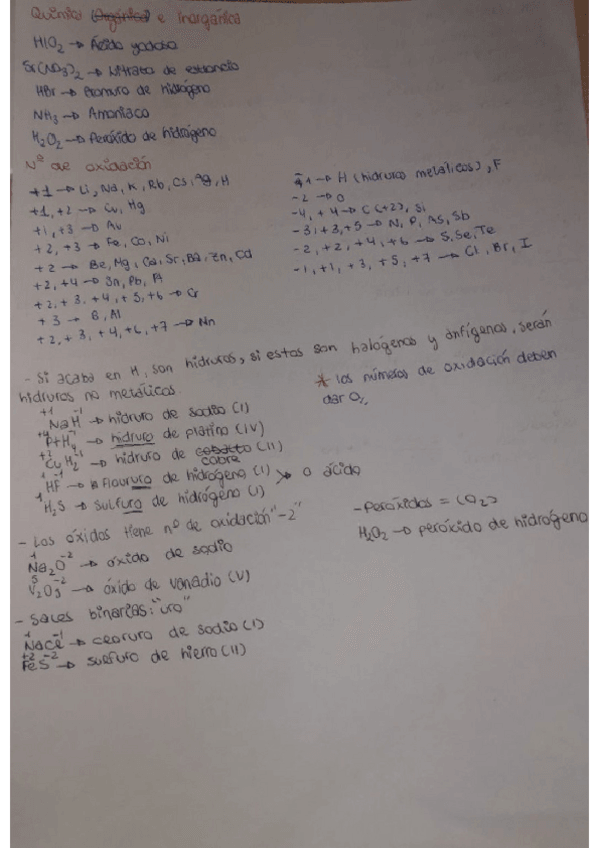 Química (Orgánica) e Inorgánica
HIO2 → Ácido yodoso
Sr(NO3)2 → Nitrato de estroncio
HBr → Bromuro de hidrógeno
NH3 → Amoniaco
H2O2 → Peróxido de hidrógeno
Nº de oxidación
+1 → Li, Na, K, Rb, Cs, Ag, H
+1, +2 → Cu, Hg
+1, +3 → Au
+2, +3 → Fe, Co, Ni
+2 → Be, Mg, Ca, Sr, Ba, Zn, Cd
+2, +4 → Sn, Pb, Pt
+2, +3, +4, +5, +6 → Cr
+3 → B, Al
+2, +3, +4, +6, +7 → Mn
-1 → H (hidruros metálicos), F
-2 → O
-4, +4 → C (+2), Si
-3, +3, +5 → N, P, As, Sb
-2, +2, +4, +6 → S, Se, Te
-1, +1, +3, +5, +7 → Cl, Br, I
- Si acaba en H, son hidruros, si estos son halógenos y anfígenos, serán
hidruros no metálicos.
* los números de oxidación deben
dar 0.
+1 -1 NaH → hidruro de sodio (I)
+4 PtH4 → hidruro de platino (IV)
+2 -1 CuH2 → hidruro de cobre (II)
1 -1 HF → floururo de hidrógeno (I) → o ácido
1 H2S → sulfuro de hidrógeno (I)
- Los óxidos tiene nº de oxidación "-2"
1 -2 Na2O → óxido de sodio
5 -2 V2O5 → óxido de vanadio (V)
- Peróxidos = (O2)
H2O2 → peróxido de hidrógeno
- Sales binarias: "uro"
1 -1 NaCl → cloruro de sodio (I)
+2 -2 FeS → sulfuro de hierro (II)